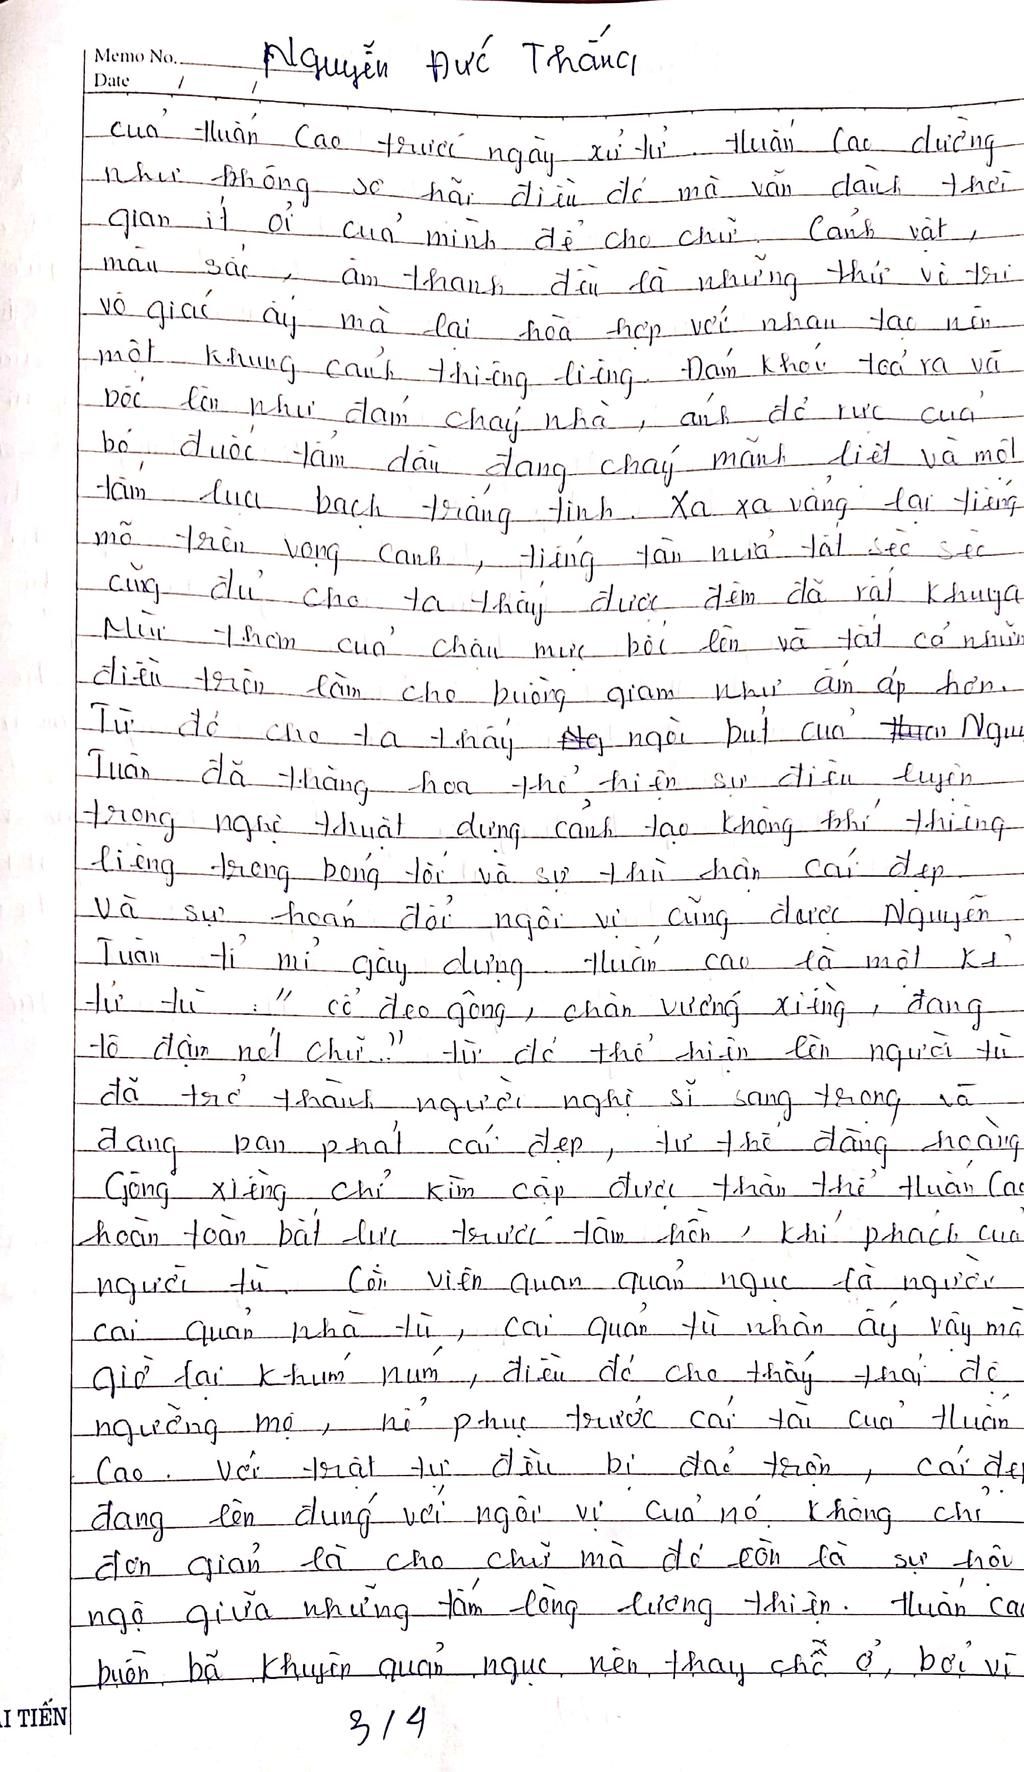 Memo No. Nguyễn Đức Thắng
Date / /
của Huấn Cao trước ngày xử tử. Huấn Cao dường
như không sợ hãi điều đó mà vẫn dành thời
gian ít ỏi của mình để cho chữ. Cảnh vật,
màu sắc, âm thanh đều là những thứ vô tri
vô giác ấy mà lại hòa hợp với nhau tạo nên
một khung cảnh thiêng liêng. Đám khói toả ra và
bốc lên như đám cháy nhà, ánh đỏ rực của
bó đuốc tẩm dầu đang cháy mãnh liệt và một
tấm lụa bạch trắng tinh. Xa xa vẳng lại tiếng
mõ trên vọng canh, tiếng tàn lửa tắt sèo sèo
cũng đủ cho ta thấy được đêm đã rất khuya
Mùi thơm của chậu mực bốc lên và tất cả những
điều trên làm cho buồng giam như ấm áp hơn.
Từ đó cho ta thấy ngòi bút của Nguyễn
Tuân đã thăng hoa thể hiện sự điêu luyện
trong nghệ thuật dựng cảnh tạo không khí thiêng
liêng trong bóng tối và sự thù hận cái đẹp
Và sự hoán đổi ngôi vị cũng được Nguyễn
Tuân tỉ mỉ gây dựng. Huấn cao là một kẻ
tử tù : " cổ đeo gông, chân vướng xiềng, đang
tô đậm nét chữ." từ đó thể hiện lên người tù
đã trở thành người nghệ sĩ sang trọng và
đang ban phát cái đẹp, tư thế đàng hoàng
Gông xiềng chỉ kìm cặp được thân thể Huấn Cao
hoàn toàn bất lực trước tâm hồn, khí phách của
người tù. Còn viên quan quản ngục là người
cai quản nhà tù, cai quản tù nhân ấy vậy mà
giờ lại khúm núm, điều đó cho thấy thái độ
ngưỡng mộ, nể phục trước cái tài của Huấn
Cao. Với trật tự đều bị đảo trộn, cái đẹp
đang lên đúng với ngôi vị của nó. Không chỉ
đơn giản là cho chữ mà đó còn là sự hội
ngộ giữa những tấm lòng lương thiện. Huấn Cao
buồn bã khuyên quản ngục nên thay chỗ ở, bởi vì
ẢI TIẾN
3/4